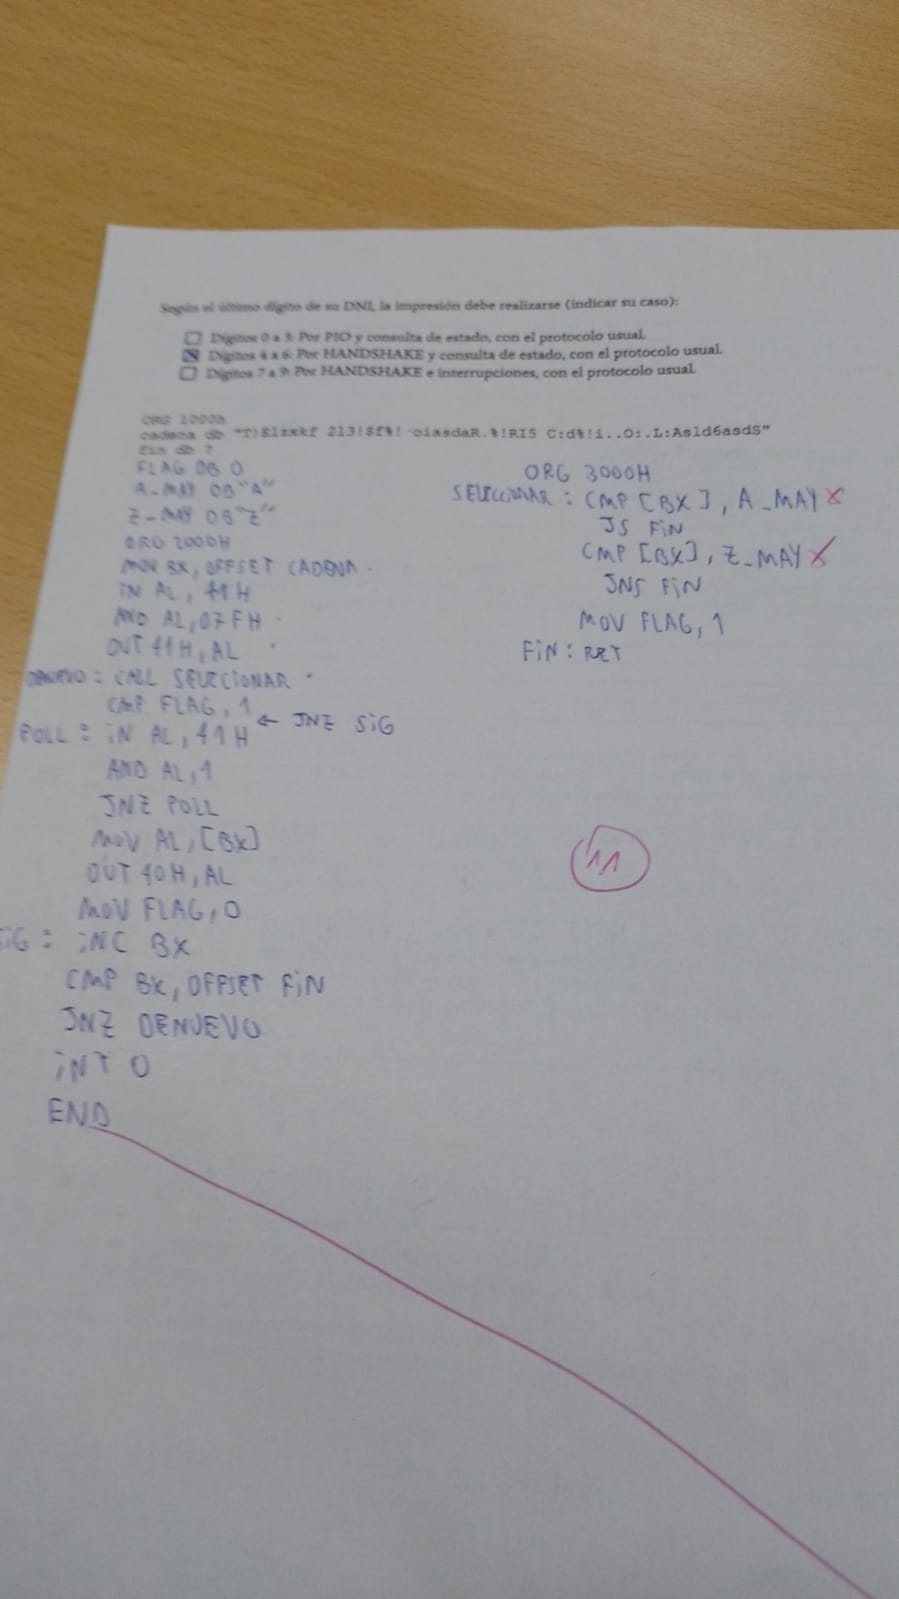 Según el último dígito de su DNI, la impresión debe realizarse (indicar su caso):
Dígitos 0 a 3: Por PIO y consulta de estado, con el protocolo usual.
Dígitos 4 a 6: Por HANDSHAKE y consulta de estado, con el protocolo usual.
Dígitos 7 a 9: Por HANDSHAKE e interrupciones, con el protocolo usual.
ORG 1000h
cadena db
fin db ?
FLAG DB 0
A_MAY DB "A"
Z_MAY DB "Z"
ORG 2000H
MOV BX, OFFSET CADENA
IN AL, 41H
AND AL, 07FH
OUT 41H, AL
DENUEVO: CALL SELECCIONAR
CMP FLAG, 1
← JNZ SIG
POLL: IN AL, 41H
AND AL, 1
JNZ POLL
MOV AL, [BX]
OUT 40H, AL
MOV FLAG, 0
SIG: INC BX
CMP BX, OFFSET FIN
JNZ DENUEVO
INT 0
END
ORG 3000H
SELECCIONAR: CMP [BX], A_MAY X
JS FIN
CMP [BX], Z_MAY X
JNS FIN
MOV FLAG, 1
FIN: RET
11